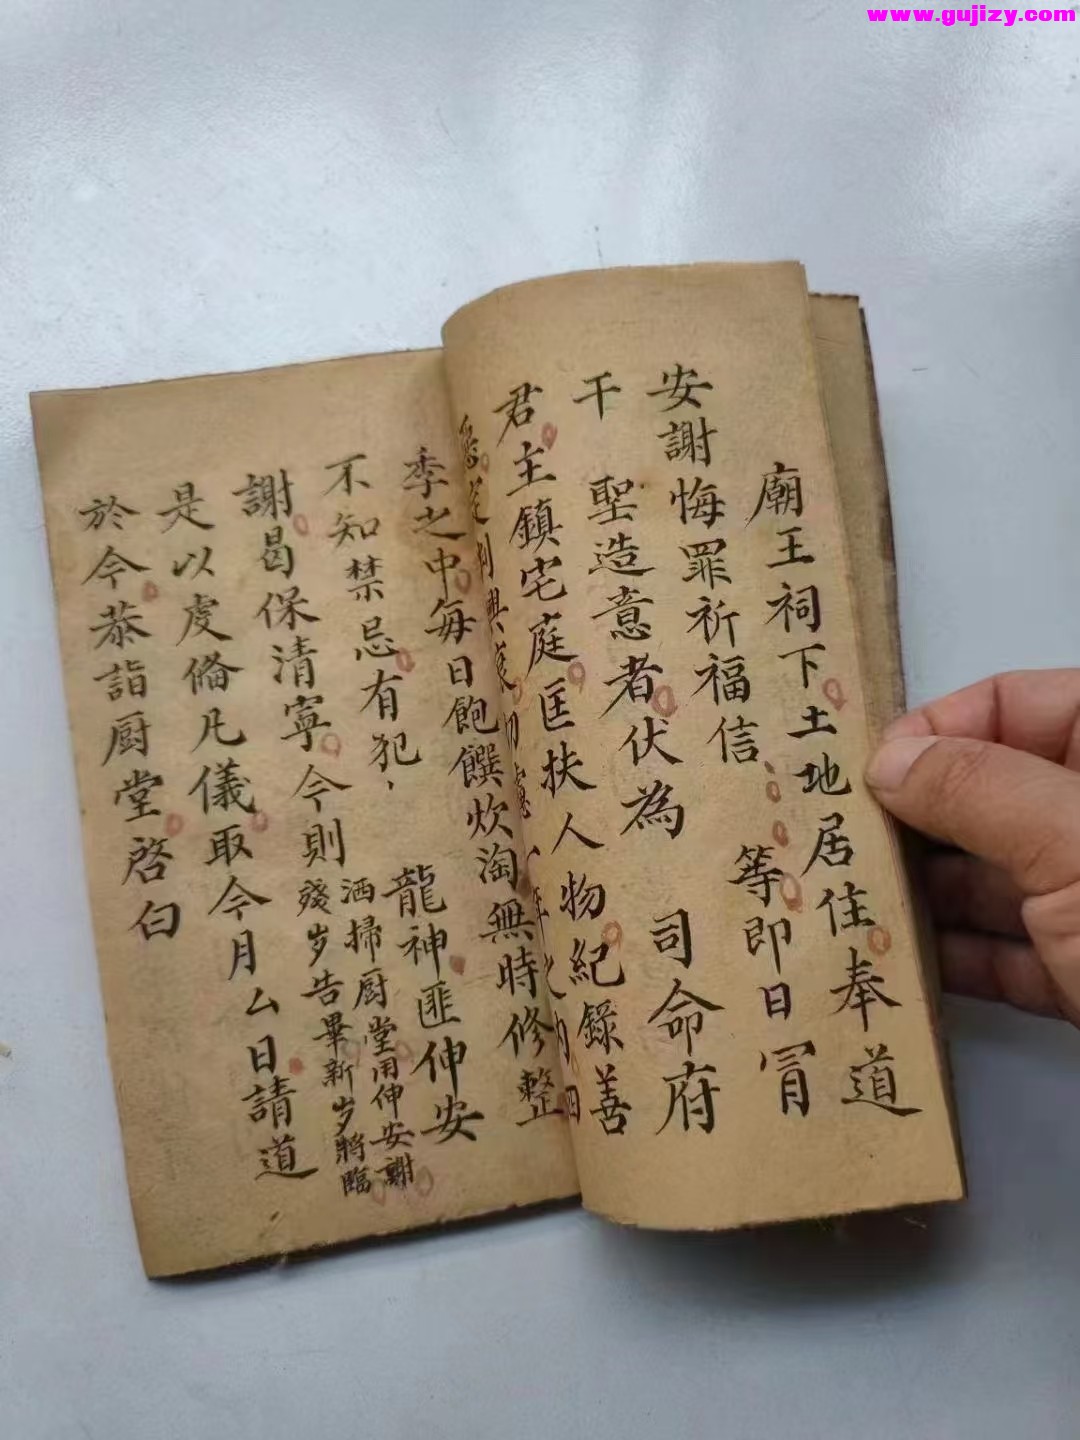 www.gujizy.com
廟王祠下土地居住奉道
安謝悔罪祈福信 等即日冐
干 聖造意者伏為 司命府
君主鎮宅庭匡扶人物紀錄善
判興衰 年之內四
季之中每日飽饌炊淘無時修整
不知禁忌有犯 龍神匪伸安
謝曷保清寧今則 洒掃厨堂用伸安謝
殘岁告畢新岁將臨
是以虔俻凡儀取今月厶日請道
於今恭詣厨堂啓白